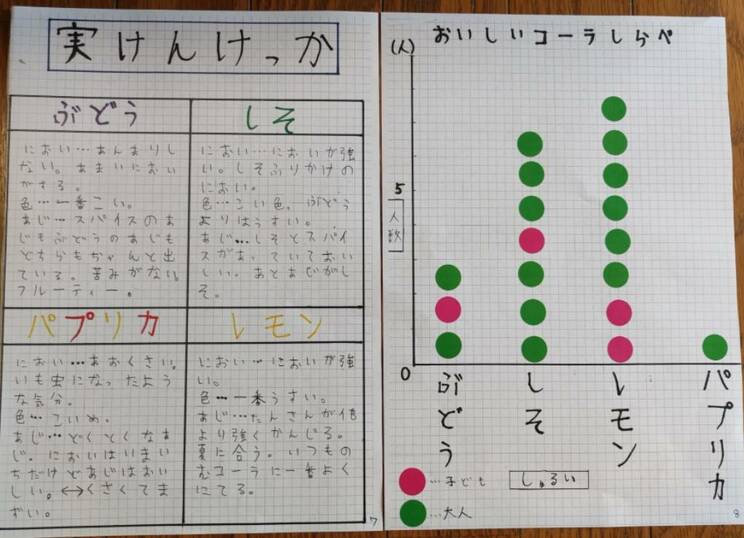 実けんけっか
ぶどう
におい…あんまりし
ない。あまいにおい
がする。
色…一番こい。
あじ…スパイスのあ
じもぶどうのあじも
どちらもちゃんと出
ている。苦みがない。
フルーティー。
しそ
におい…においが強
い。しそふりかけの
におい。
色…こい色。ぶどう
よりはうすい。
あじ…しそとスパイ
スがあっていておい
しい。あとあじがし
そ。
パプリカ
におい…あおくさい。
いも虫になったよう
な気分。
色…こいめ。
あじ…どくとくなあ
じ。においはいまい
ちだけどあじはおい
しい。↔くさくてま
ずい。
レモン
におい…においが強
い。
色…一番うすい。
あじ…たんさんが
より強くかんじる。
夏に合う。いつもの
むコーラに一番よく
にてる。
7
おいしいコーラしらべ
(人)
5
人数
0
ぶどう
しそ
レモン
パプリカ
…子ども
しゅるい
…大人
8